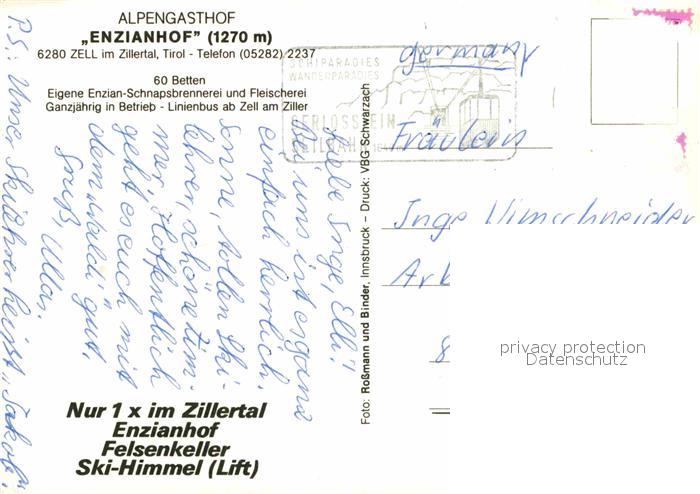 ALPENGASTHOF
„ENZIANHOF" (1270 m)
6280 ZELL im Zillertal, Tirol - Telefon (05282) 2237
60 Betten
Eigene Enzian-Schnapsbrennerei und Fleischerei
Ganzjährig in Betrieb - Linienbus ab Zell am Ziller
Liebe Inge, Elli!
Bei uns ist es ganz
einfach herrlich.
Sonne, tollen Ski-
lehrer, schöne Zim-
mer. Hoffentlich
geht es euch mit
dem "Waldi" gut.
Gruß, Ulla.
P.S.: Unser Skilehrer heißt "Jakob".
Nur 1 x im Zillertal
Enzianhof
Felsenkeller
Ski-Himmel (Lift)
Foto: Roßmann und Binder, Innsbruck – Druck: VBG-Schwarzach
SCHIPARADIES
WANDERPARADIES
GERLOSSTEIN
SEILBAHN
Germany
Fräulein
Inge
Ar
8
privacy protection
Datenschutz